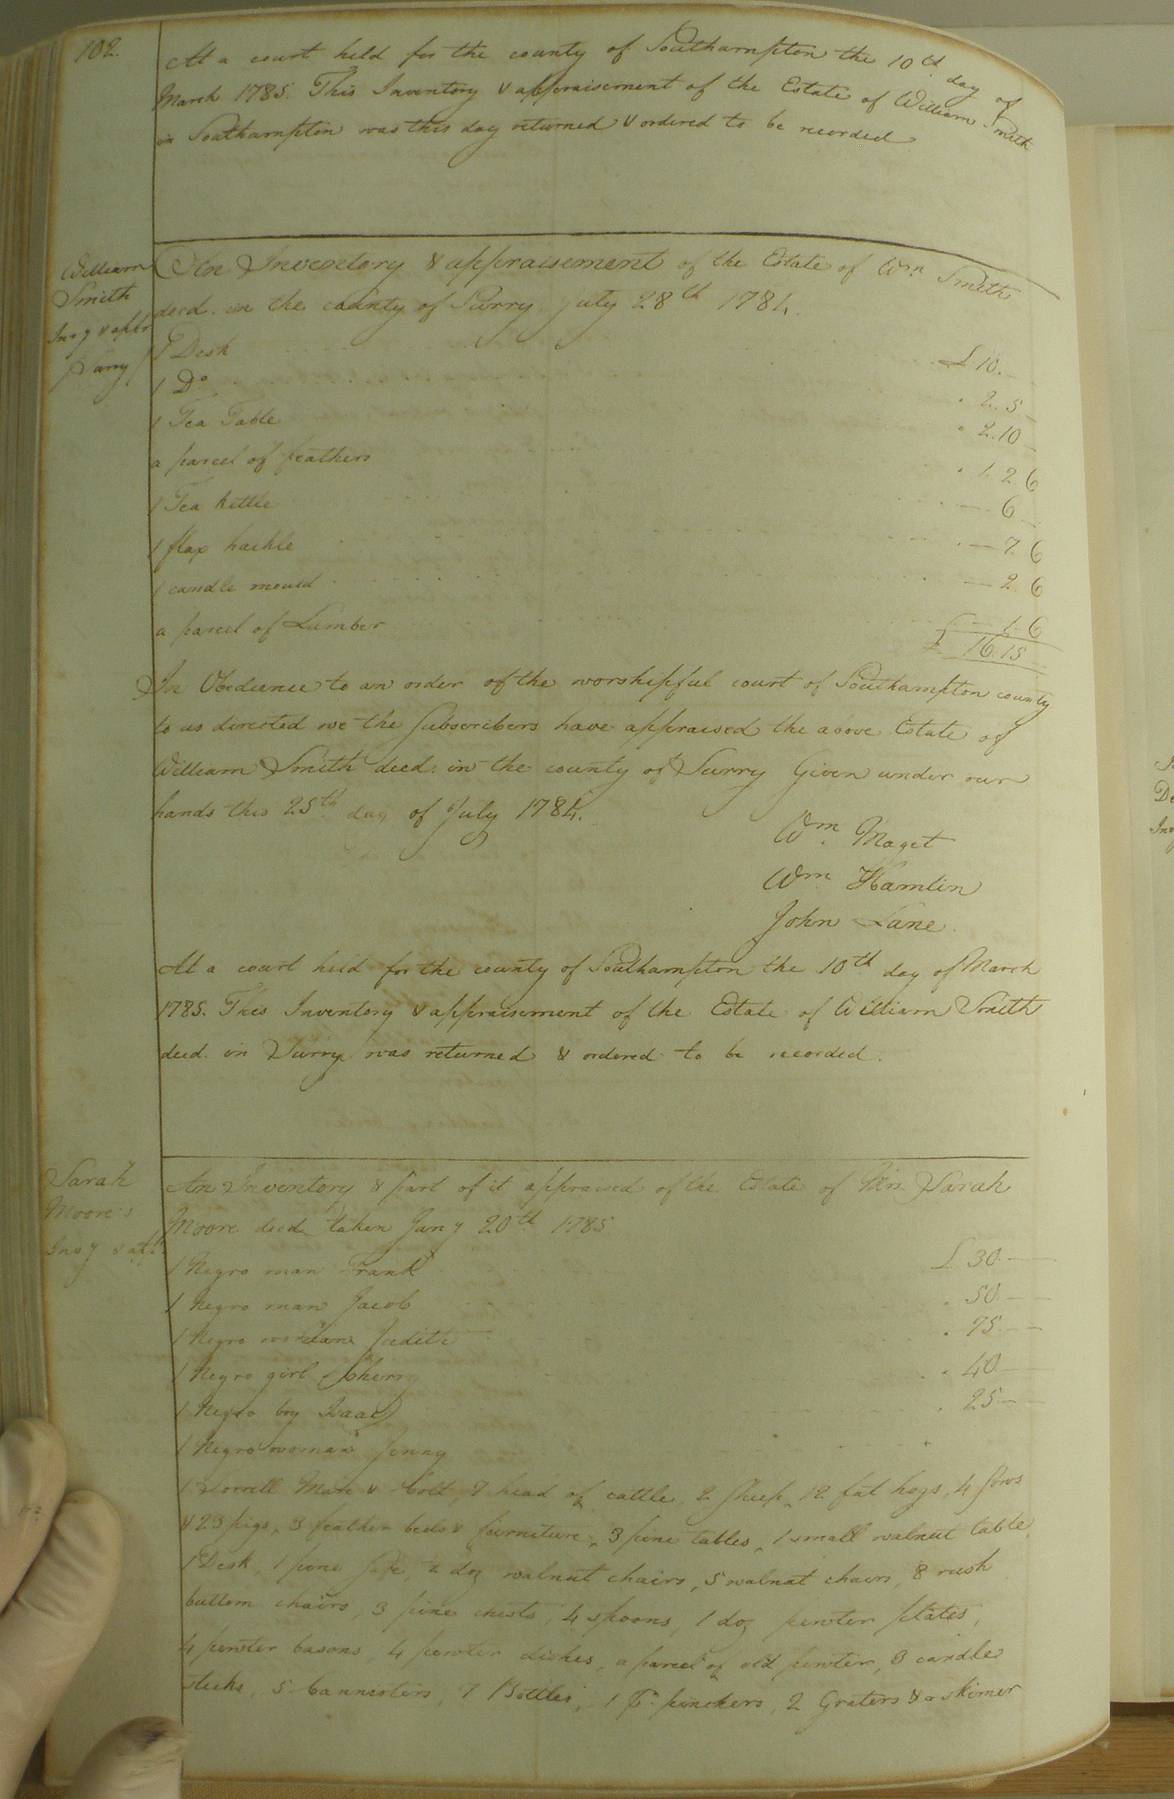 102.
At a court held for the county of Southampton the 10th day of
March 1785. This Inventory & appraisement of the Estate of William Smith
in Southampton was this day returned & ordered to be recorded
William
Smith
Invy & appt
Surry
An Inventory & appraisement of the Estate of Wm. Smith
decd. in the county of Surry July 28th 1784.
1 Desk £ 10. —
1 Do. 2. 5 —
1 Tea Table 2. 10 —
a parcel of feathers 1. 2 6
1 Tea kettle — 6 —
1 flax hackle — 7. 6
1 candle mould — 2. 6
a parcel of Lumber — 1. 6
£ 16. 15
In Obedience to an order of the worshipful court of Southampton county
to us directed we the subscribers have appraised the above Estate of
William Smith decd. in the county of Surry Given under our
hands this 25th day of July 1784.
Wm. Maget
Wm. Hamlin
John Lane.
At a court held for the county of Southampton the 10th day of March
1785. This Inventory & appraisement of the Estate of William Smith
decd. in Surry was returned & ordered to be recorded.
Sarah
Moore's
Invy & appt
An Inventory & part of it appraised of the Estate of Mrs. Sarah
Moore decd taken Jany 20th 1785
1 Negro man Frank £ 30. —
1 Negro man Jacob 50. —
1 Negro woman Judith 75. —
1 Negro girl Cherry 40 —
1 Negro boy Isaac 25. —
1 Negro woman Jenny
1 Sorrell Mare & Colt, 7 head of cattle, 2 sheep, 12 fat hogs, 4 sows
& 23 pigs, 3 feather beds & furniture, 3 pine tables, 1 small walnut table,
1 Desk, 1 pine doz walnut chairs, 5 walnut chairs, 8 rush
buttom chairs, 3 pine chests, 4 spoons, 1 doz pewter plates,
4 pewter basons, 4 pewter dishes, a parcel of old pewter, 3 candle
sticks, 5 Cannisters, 7 Bottles, 1 pr. pinchers, 2 Graters & a skimer